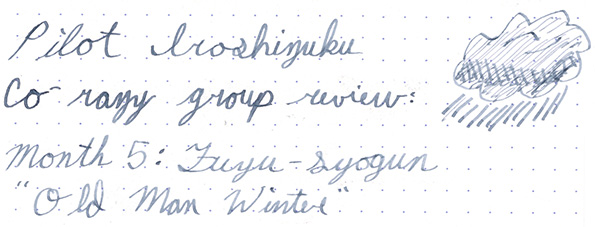 Pilot Iroshizuku
Co-razy group review:
Month 5: Fuyu-syogun
"Old Man Winter"